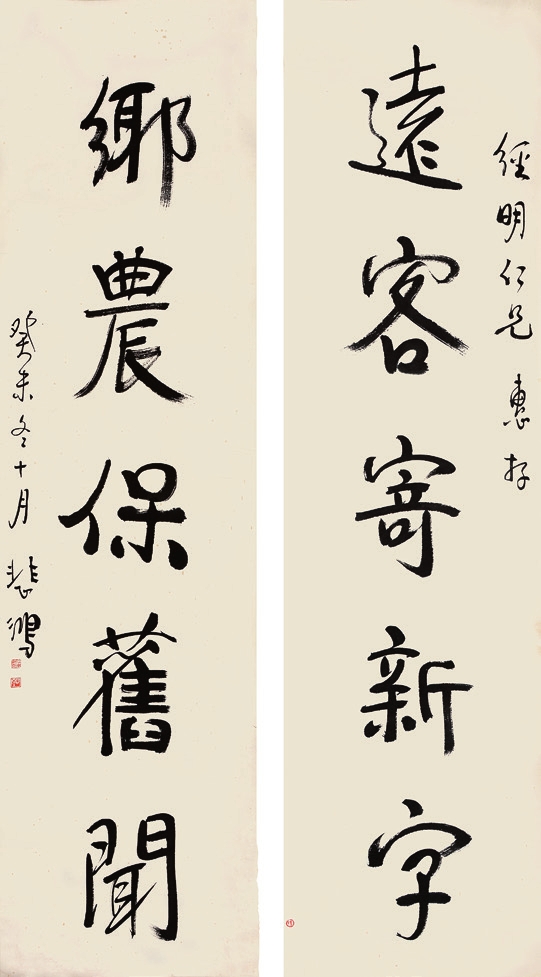 經明仁兄 惠存
遠客寄新字
鄉農保舊聞
癸未冬十月 悲鴻